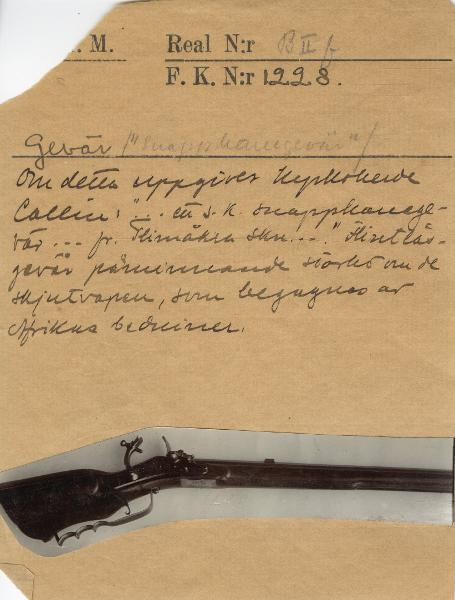 . M. Real N:r B II f
F. K. N:r 1228.
Gevär ("snapphanegevär")
Om detta uppgives Kyrkoherde
Collin: "... ett s. k. snapphanege-
vär ... fr. Himåkra skn...." Flintlås-
gevär påminnande starkt om de
skjutvapen, som begagnas av
Afrikas beduiner.